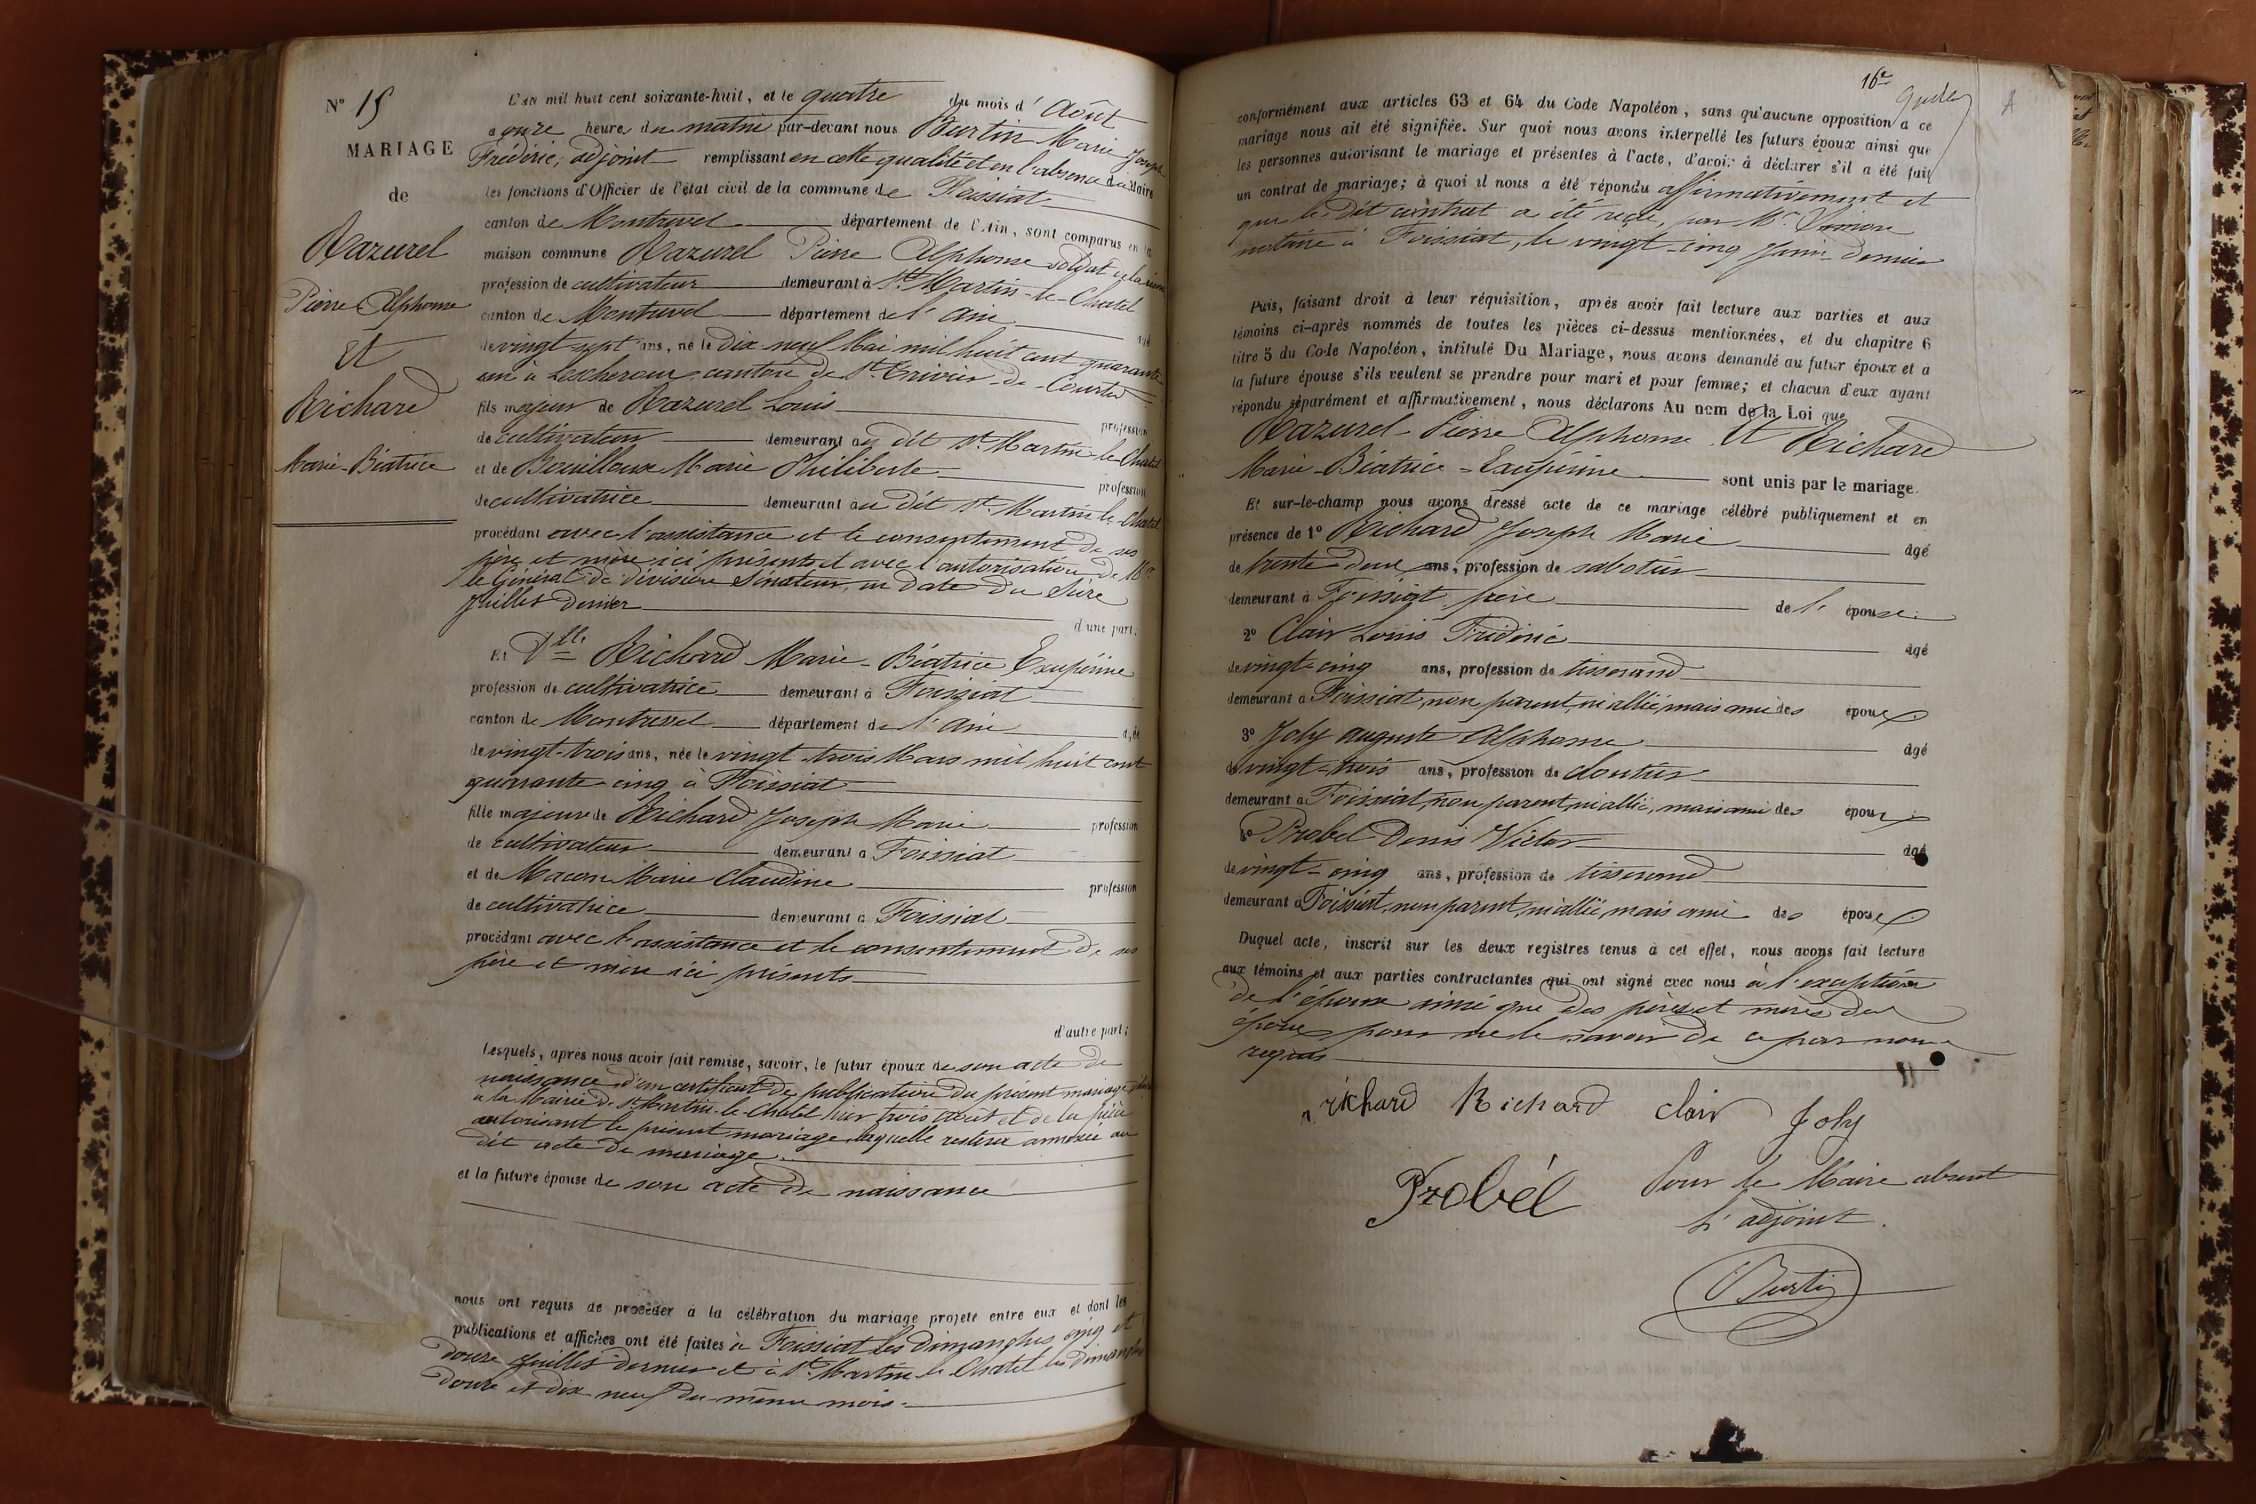 N° 15
MARIAGE
de
Razurel
Pierre Alphonse
Et
Richard
Marie-Béatrice
L'an mil huit cent soixante-huit, et le quatre du mois d'Août
a onze heures du matin par-devant nous Burtin Marie Joseph
Frédéric, adjoint remplissant en cette qualité et en l'absence du Maire
les fonctions d'Officier de l'état civil de la commune de Foissiat
canton de Montrevel département de l'Ain, sont comparus en la
maison commune Razurel Pierre Alphonse soldat de la
profession de cultivateur demeurant à St Martin-le-Chatel
canton de Montrevel département de l'Ain
de vingt-sept ans, né le dix neuf Mai mil huit cent quarante
un à Lescheroux canton de St Trivier-de-Courtes
fils majeur de Razurel Louis profession
de cultivateur demeurant au dit St Martin le Chatel
et de Bouilloux Marie Philiberte profession
de cultivatrice demeurant au dit St Martin le Chatel
procédant avec l'assistance et le consentement de ses
père et mère ici présents et avec l'autorisation de Mr
le Général de Division Sénateur, en date du seize
Juillet dernier
d'une part;
Et Dlle Richard Marie-Béatrice Exupérine
profession de cultivatrice demeurant à Foissiat
canton de Montrevel département de l'Ain
de vingt-trois ans, née le vingt-trois Mars mil huit cent
quarante-cinq à Foissiat
fille majeure de Richard Joseph Marie profession
de cultivateur demeurant à Foissiat
et de Macon Marie Claudine profession
de cultivatrice demeurant à Foissiat
procédant avec l'assistance et le consentement de ses
père et mère ici présents
d'autre part;
Lesquels, après nous avoir fait remise, savoir, le futur époux de son acte de
naissance, d'un certificat de publication du présent mariage
à la Mairie de St Martin-le-Chatel hier trois août et de la pièce
autorisant le présent mariage laquelle restera annexée au
dit acte de mariage.
et la future épouse de son acte de naissance
nous ont requis de procéder à la célébration du mariage projeté entre eux et dont les
publications et affiches ont été faites à Foissiat les dimanches cinq et
douze Juillet dernier et à St Martin le Chatel les dimanches
douze et dix neuf du même mois.
16e
conformément aux articles 63 et 64 du Code Napoléon, sans qu'aucune opposition a ce
mariage nous ait été signifiée. Sur quoi nous avons interpellé les futurs époux ainsi que
les personnes autorisant le mariage et présentes à l'acte, d'avoir à déclarer s'il a été fait
un contrat de mariage; à quoi il nous a été répondu affirmativement et
que le dit contrat a été reçu, par Me
notaire à Foissiat, le vingt-cinq Juin dernier
Puis, faisant droit à leur réquisition, après avoir fait lecture aux parties et aux
témoins ci-après nommés de toutes les pièces ci-dessus mentionnées, et du chapitre 6
titre 5 du Code Napoléon, intitulé Du Mariage, nous avons demandé au futur époux et a
la future épouse s'ils veulent se prendre pour mari et pour femme; et chacun d'eux ayant
répondu séparément et affirmativement, nous déclarons Au nom de la Loi que
Razurel-Pierre Alphonse Et Richard
Marie-Béatrice-Exupérine sont unis par le mariage.
Et sur-le-champ nous avons dressé acte de ce mariage célébré publiquement et en
présence de 1° Richard Joseph Marie âgé
de trente-deux ans, profession de sabotier
demeurant à Foissiat frère de l' épouse.
2° Clair Louis Frédéric âgé
de vingt-cinq ans, profession de tisserand
demeurant à Foissiat, non parent, ni allié, mais ami des époux.
3° Joly Auguste Alphonse âgé
de vingt-trois ans, profession de cloutier
demeurant à Foissiat, non parent, ni allié, mais ami des époux.
4° Probel Denis Victor âgé
de vingt-cinq ans, profession de tisserand
demeurant à Foissiat, non parent, ni allié, mais ami des époux.
Duquel acte, inscrit sur les deux registres tenus à cet effet, nous avons fait lecture
aux témoins et aux parties contractantes qui ont signé avec nous à l'exception
de l'époux ainsi que des pères et mères des
époux pour ne le savoir de ce par nous
requis
richard Richard clair Joly
Probel Pour le Maire absent
L'adjoint.
Burtin